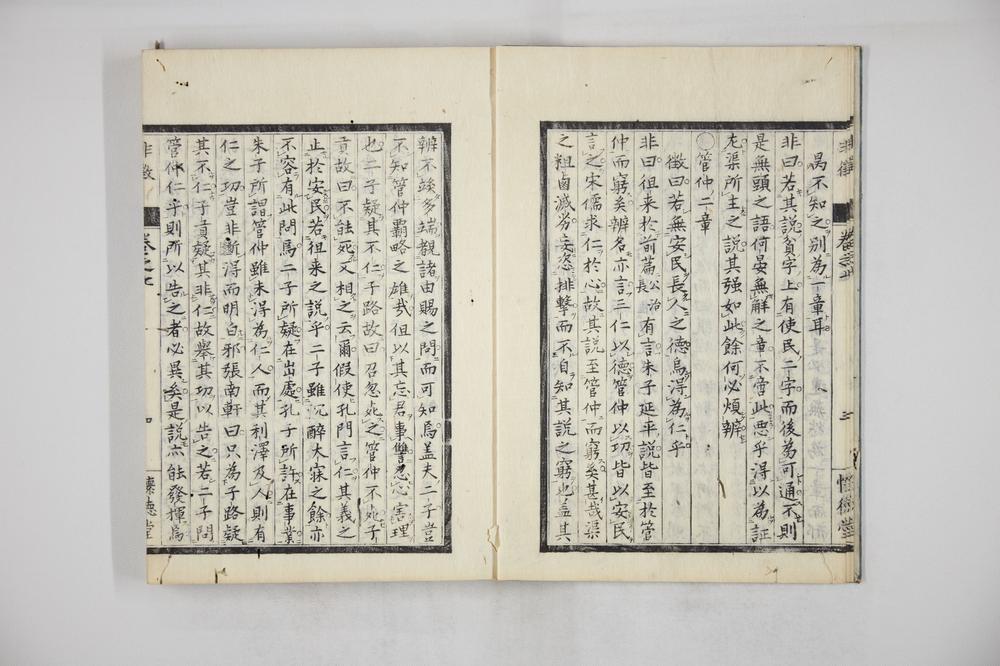 曷不知之別為一章耳
非曰若其說貧字上有使民二字而後為可通不則
是無頭之語何晏無解之章不啻此惡乎得以為証
尨渠所主之說其强如此餘何必煩辨
○管仲二章
徵曰若無安民長人之德烏得為仁乎
非曰徂来於前篇公治長有言朱子延平說皆至於管
仲而窮矣辨名亦言三仁以德管仲以功皆以安民
言之宋儒求仁於心故其說至管仲而窮矣甚哉渠
之粗鹵滅劣妄恣排擊而不自知其說之窮也盖其
辨不竢多端觀諸由賜之問而可知焉盖夫二子豈
不知管仲霸略之雄哉但以其忘君事讐忍心害理
也二子疑其不仁子路故曰召忽死之管仲不死子
貢故曰不能死又相之云爾假使孔門言仁其義之
止於安民若徂来之說乎二子雖沉醉大寐之餘亦
不容有此問焉二子所疑在出處孔子所許在事業
朱子所謂管仲雖未得為仁人而其利澤及人則有
仁之功豈非斷得而明白邪張南軒曰只為子路疑
其不仁子貢疑其非仁故舉其功以告之若二子問
管仲仁乎則所以告之者必異矣是說亦能發揮焉
非徵 卷之 四 懷德堂